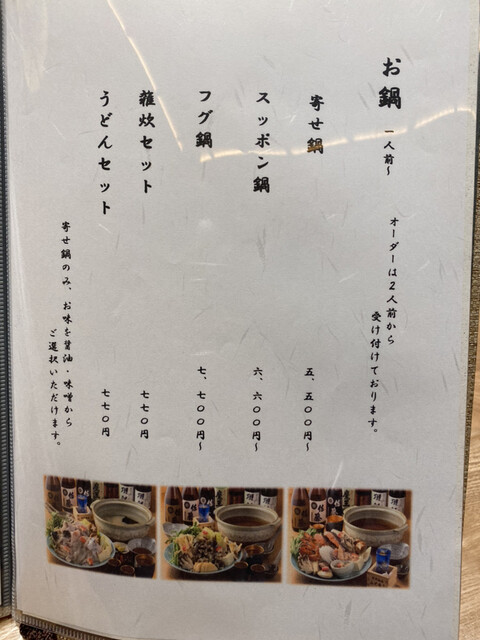 お鍋 一人前～
オーダーは２人前から
受け付けております。
寄せ鍋 五、五〇〇円～
スッポン鍋 六、六〇〇円～
フグ鍋 七、七〇〇円～
雑炊セット 七七〇円
うどんセット 七七〇円
寄せ鍋のみ、お味を醤油・味噌から
ご選択いただけます。